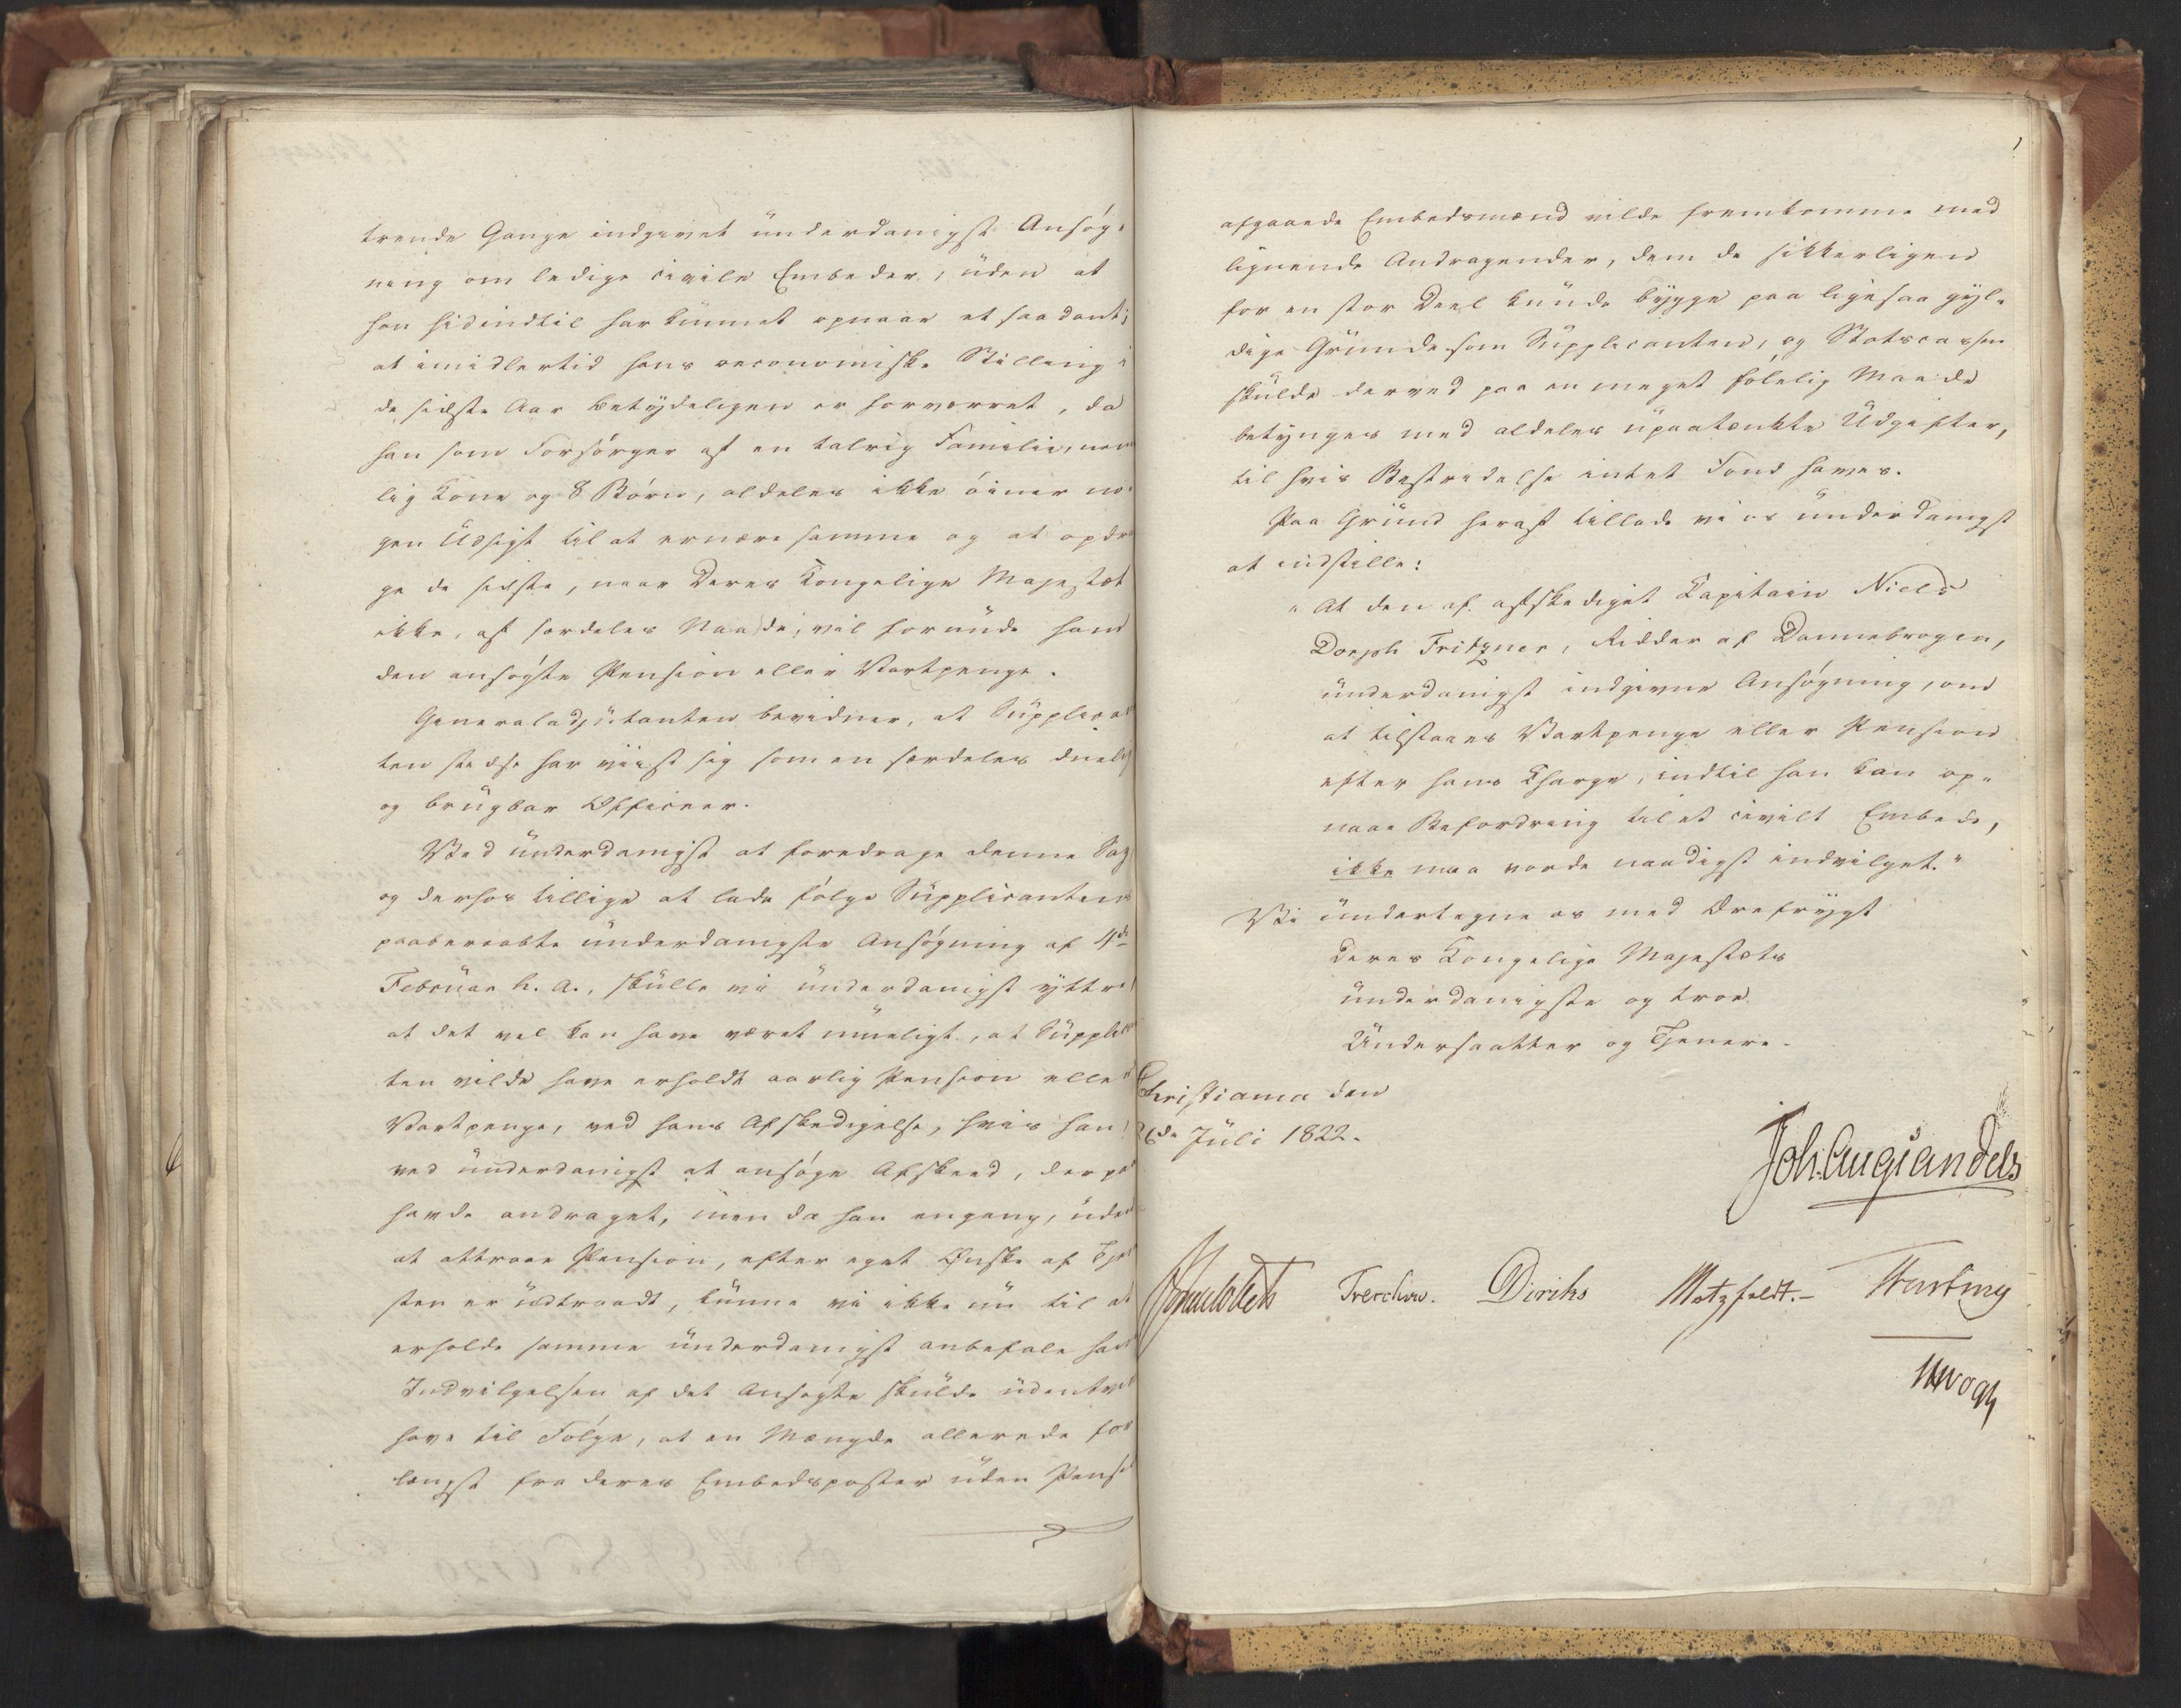 trende Gange indgivet underdanigst Ansøg-
ning om ledige civile Embeder, uden at
han hidindtil har kunnet opnaae et saadant;
at imidlertid hans oeconomiske Stilling i
de sidste Aar betydeligen er forværret, da
han som Forsørger af en talrig Familie, nem
lig Kone og 8 Børn, aldeles ikke øiner no-
gen Udsigt til at ernære samme og at opdra
ge de sidste, naar Deres Kongelige Majestæt
ikke, af særdeles Naade, vil forunde ham
den ansøgte Pension eller Vartpenge.
Generaladjutanten bevidner, at Supplican
ten stedse har viist sig som en særdeles duelig
og brugbar Officeer.
Ved underdanigst at foredrage denne Sag
og derhos tillige at lade følge Supplicantens
paaberaabte underdanigste Ansøgning af 4de
Februar h. a., skulle vi underdanigst yttre,
at det vel kan have været mueligt, at Supplican
ten vilde have erholdt aarlig Pension eller
Vartpenge, ved hans Afskedigelse, hvis han,
ved underdanigst at ansøge Afskeed, derpaa
havde andraget, men da han engang, uden
at attraae Pension, efter eget Ønske af Tjene
sten er udtraadt, kunne vi ikke nu til at
erholde samme underdanigst anbefale ham
Indvilgelsen af det Ansøgte skulde udentvivl
have til Følge, at en Mængde allerede for
længst fra deres Embedsposter uden Pension
afgaaede Embedsmænd vilde fremkomme med
lignende Andragender, dem de sikkerligen
for en stor Deel kunde bygge paa ligesaa gyl-
dige Grunde som Supplicanten, og Statscassen
skulde derved paa en meget følelig Maade
betynges med aldeles upaatænkte Udgifter,
til hvis Bestridelse intet Fond haves.
Paa Grund heraf tillade vi os underdanigst
at indstille:
"At den af afskediget Capitain Niels
Dorph Fritzner, Ridder af Dannebrogen,
underdanigst indgivne Ansøgning, om
at tilstaaes Vartpenge eller Pension
efter hans Charge, indtil han kan op-
naae Befordring til et civilt Embede,
ikke maa vorde naadigst indvilget."
Vi undertegne os med Ærefrygt
Deres Kongelige Majestæts
underdanigste og troe
Undersaatter og Tjenere.
Christiania den
26de Juli 1822.
Joh. Aug: Sandels
Sommerhielm Treschow. Diriks Motzfeldt.- Fasting
Krogh